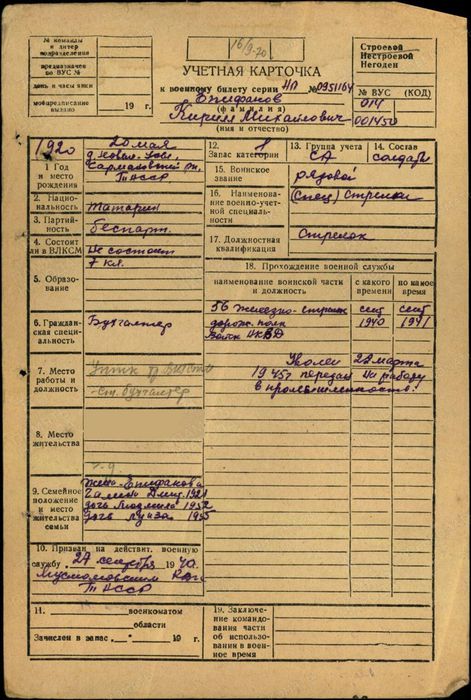 № команды
и литер
подразделения
предназначен
по ВУС №
день и часы явки
мобпредписание
выдано 19 г.
16/9-70
Строевой
Нестроевой
Негоден
УЧЕТНАЯ КАРТОЧКА
к военному билету серии НП № 0951164
Епифанов
(фамилия)
Кирилл Михайлович
(имя и отчество)
№ ВУС (КОД)
014
001450
1920
1 Год
и место
рождения
20 мая
Сармановский рн,
ТАССР
2. Нацио-
нальность
Татарин
3. Партий-
ность
беспарт.
4. Состоит
ли в ВЛКСМ
Не состоит
5. Образо-
вание
7 кл.
6. Граждан-
ская специ-
альность
Бухгалтер
7. Место
работы и
должность
Ст. бухгалтер
8. Место
жительства
9. Семейное
положение
и место
жительства
семьи
жена - Епифанова
Галина Дмит. 1921
дочь Людмила 1952
дочь Луиза 1955
10. Призван на действит. военную
службу „27 сентября 1940.
Муслюмовским РВК
ТАССР
11. военкоматом
области
Зачислен в запас „ " 19 г.
12. I
Запас категории
13. Группа учета
СА
14. Состав
солдаты
15. Воинское
звание
рядовой
16. Наименование
военно-учет-
ной специаль-
ности
(спец) Стрелки
17. Должностная
квалификация
Стрелок
18. Прохождение военной службы
наименование воинской части и
должность
с какого
времени
по какое
время
56 железно-стрелк
дорожн. полк
войск НКВД
сент
1940
сент
1941
Уволен 22 марта
1945г передан на работу
в промышленность.
19. Заключение
командова-
ния части
об исполь-
зовании в
военное
время